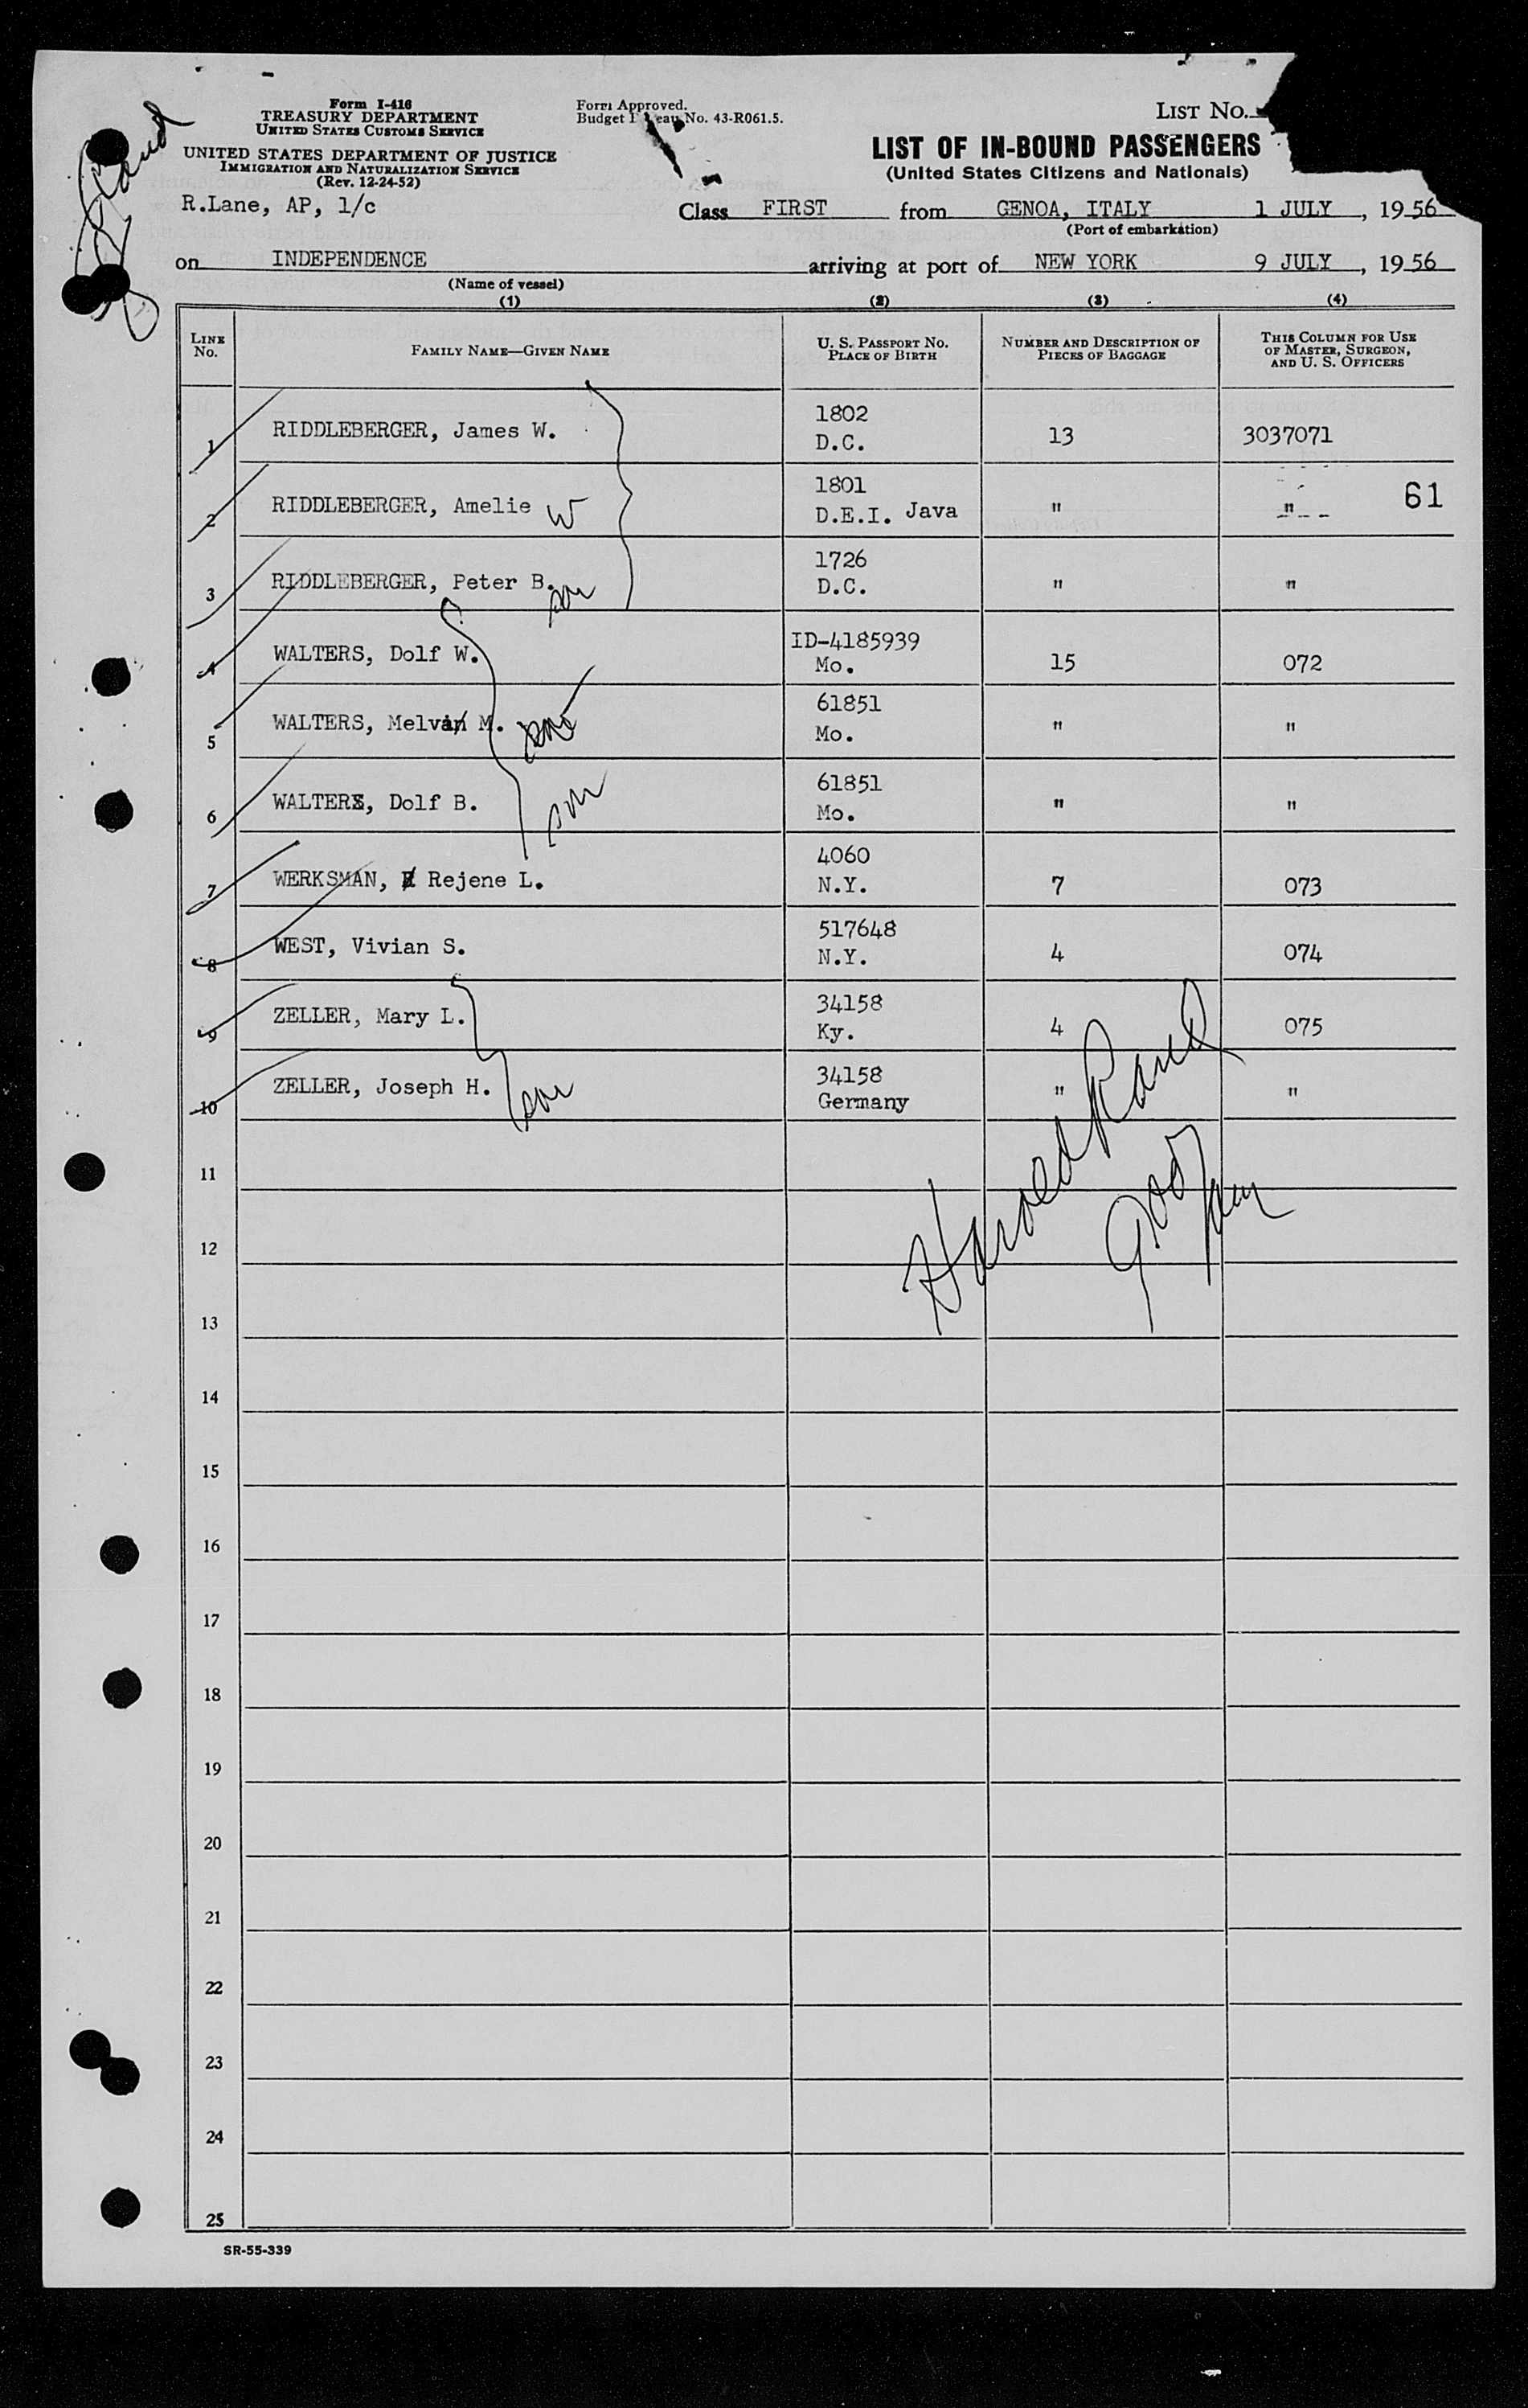 Form I-416
TREASURY DEPARTMENT
UNITED STATES CUSTOMS SERVICE
UNITED STATES DEPARTMENT OF JUSTICE
IMMIGRATION AND NATURALIZATION SERVICE
(Rev. 12-24-52)
Form Approved.
Budget Bureau No. 43-R061.5.
LIST No.
LIST OF IN-BOUND PASSENGERS
(United States Citizens and Nationals)
R.Lane, AP, 1/c
Class FIRST from GENOA, ITALY 1 JULY, 1956
(Port of embarkation)
on INDEPENDENCE arriving at port of NEW YORK 9 JULY, 1956
(Name of vessel)
(1) (2) (3) (4)
LINE No. FAMILY NAME—GIVEN NAME U. S. PASSPORT No. PLACE OF BIRTH NUMBER AND DESCRIPTION OF PIECES OF BAGGAGE THIS COLUMN FOR USE OF MASTER, SURGEON, AND U. S. OFFICERS
1 RIDDLEBERGER, James W. 1802 D.C. 13 3037071
2 RIDDLEBERGER, Amelie W 1801 D.E.I. Java " " 61
3 RIDDLEBERGER, Peter B. son 1726 D.C. " "
4 WALTERS, Dolf W. ID-4185939 Mo. 15 072
5 WALTERS, Melvin M. 61851 Mo. " "
6 WALTERS, Dolf B. son 61851 Mo. " "
7 WERKSMAN, Rejene L. 4060 N.Y. 7 073
8 WEST, Vivian S. 517648 N.Y. 4 074
9 ZELLER, Mary L. 34158 Ky. 4 075
10 ZELLER, Joseph H. son 34158 Germany " "
Harold Rand
11
12
13
14
15
16
17
18
19
20
21
22
23
24
25
SR-55-339